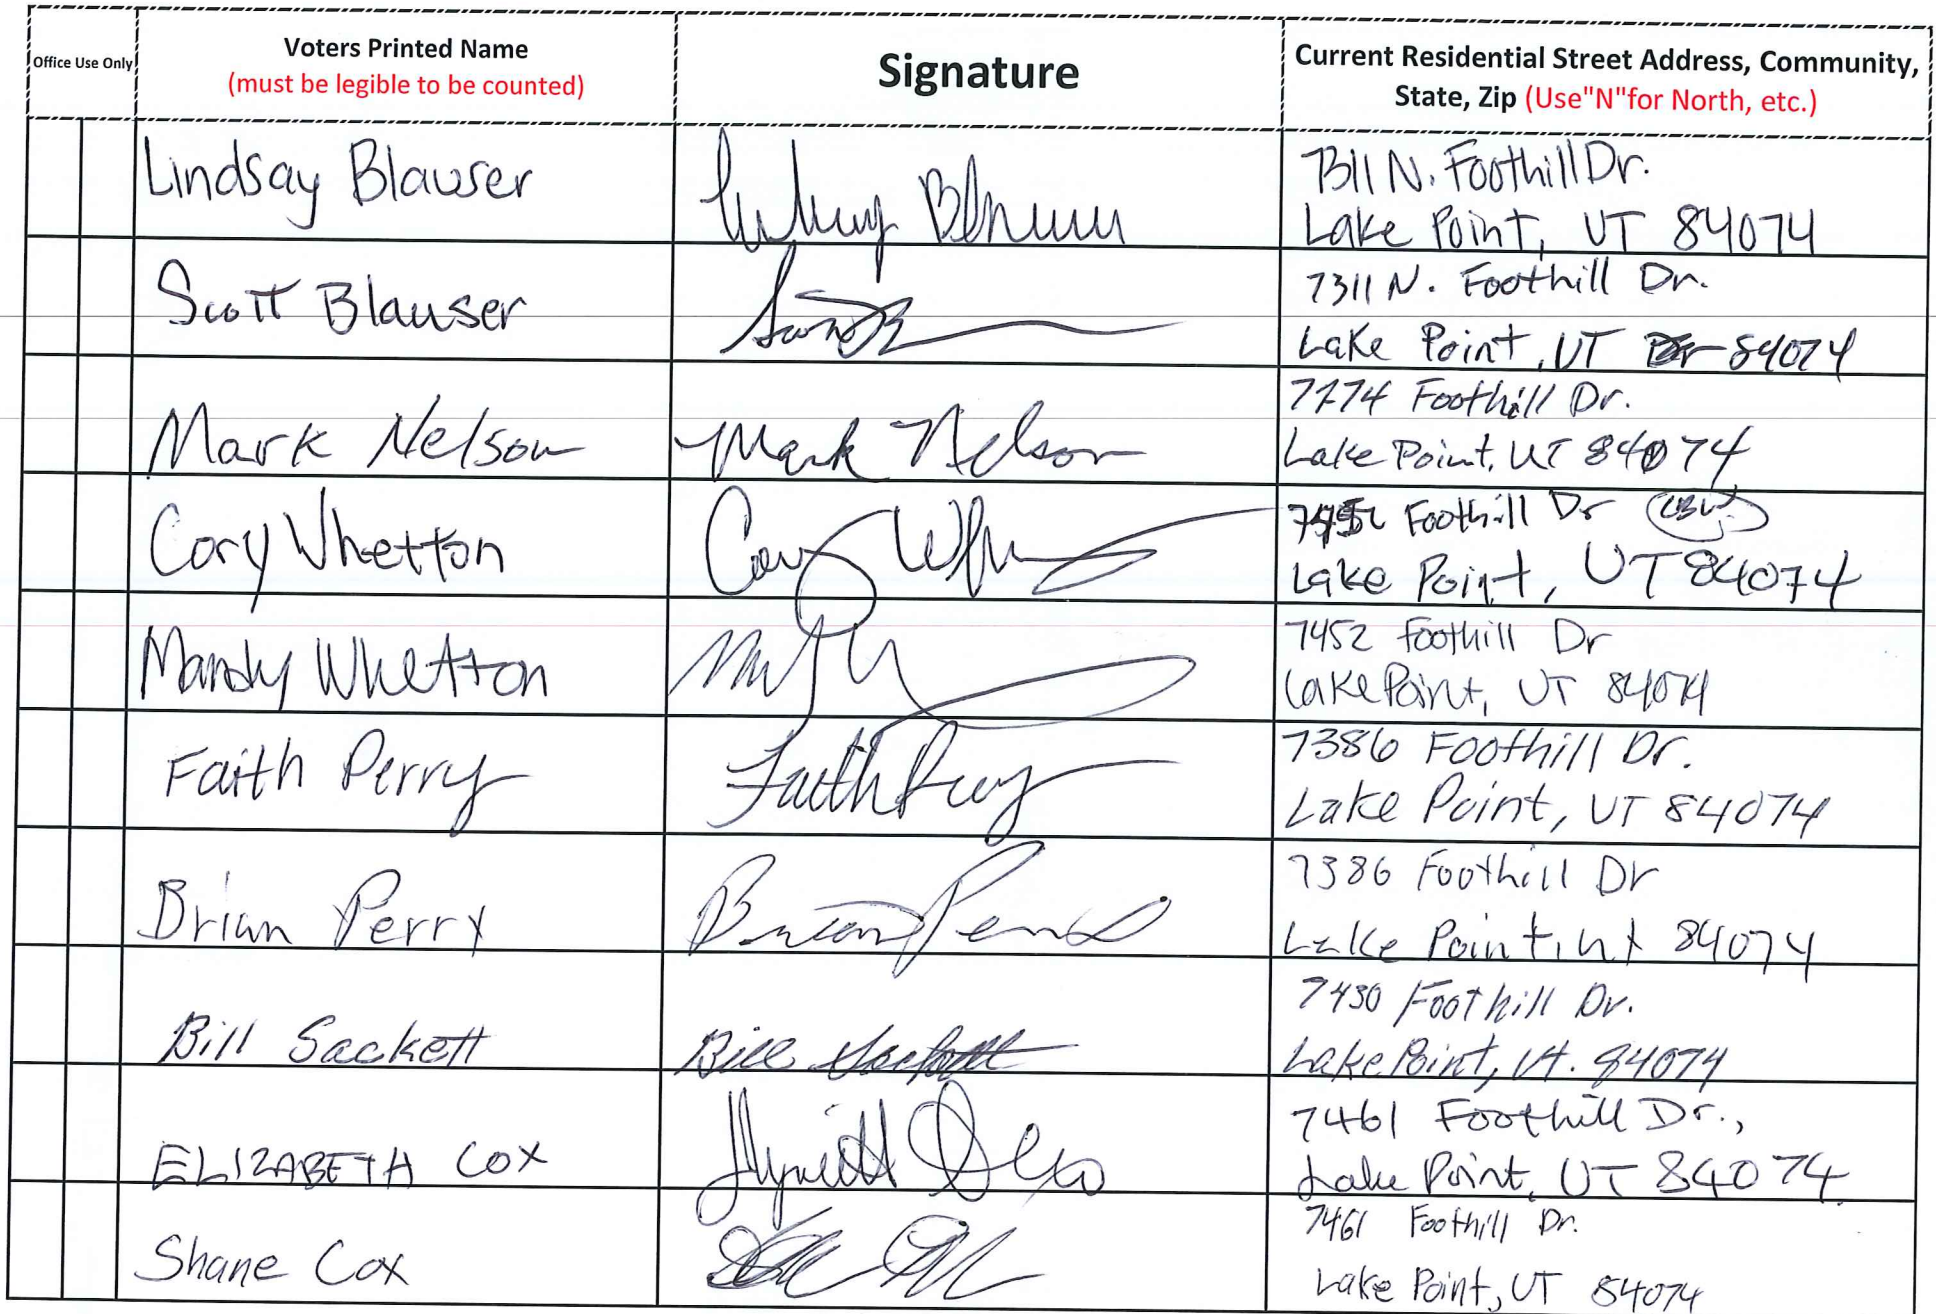 Office Use Only
Voters Printed Name
(must be legible to be counted)
Signature
Current Residential Street Address, Community,
State, Zip (Use"N"for North, etc.)
Lindsay Blauser
7311 N. Foothill Dr.
Lake Point, UT 84074
Scott Blauser
7311 N. Foothill Dr.
Lake Point, UT 84074
Mark Nelson
Mark Nelson
Foothill Dr.
Lake Point, UT 84074
Cory Whetton
Cory
Foothill Dr
Lake Point, UT 84074
Mandy Whetton
7452 Foothill Dr
Lake Point, UT 84074
Faith Perry
Faith Perry
7386 Foothill Dr.
Lake Point, UT 84074
Brian Perry
Brian Perry
7386 Foothill Dr
Lake Point, ut 84074
Bill Sackett
Bill Sackett
7430 Foothill Dr.
Lake Point, Ut. 84074
ELIZABETH COX
7461 Foothill Dr.,
Lake Point, UT 84074
Shane Cox
7461 Foothill Dr.
Lake Point, UT 84074